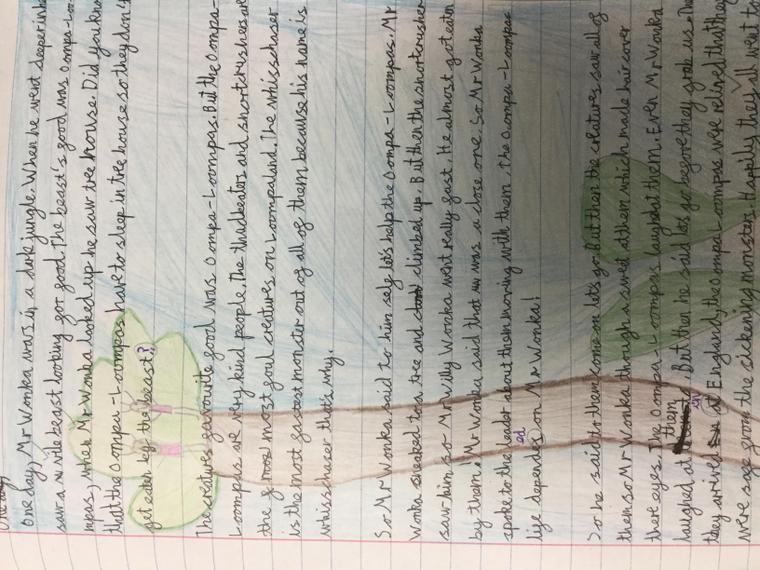 One day, Mr Wonka was in a dark jungle. When he went deeper in he
saw a vile beast looking for food. The beast's food was Oompa-Loo
mpas, when Mr Wonka looked up he saw tree house. Did you know
that the Oompa-Loompas have to sleep in tree house so they don't
get eaten by the beast?
The creatures favourite food was Oompa-Loompas. But the Oompa-
Loompas are very kind people. The thudbeaters and shortcrushes are
the most foul creatures on Loompaland. The whisschaser
is the most fastest monster out of all of them because his name is
whisschaser that's why.
So Mr Wonka said to him self let's help the Oompa-Loompas. Mr
Wonka sneaked to a tree and climbed up. But then the shortcrusher
saw him so Mr Willy Wonka went really fast. He almost got eaten
by them! Mr Wonka said that was a close one. So Mr Wonka
spoke to the leader about them moving with them. The Oompa-Loompas
life depended on Mr Wonka!
So he said to them come on lets go. But then the creatures saw all of
them so Mr Wonka though a swed at them which made hair cover
there eyes. The Oompa-Loompas laugh at them. Even Mr Wonka
laughed at them. But then he said lets go before they grab us. The
they arrived in England, the Oompa Loompas were relived that they
were safe from the sickening monster. Happily they all went to